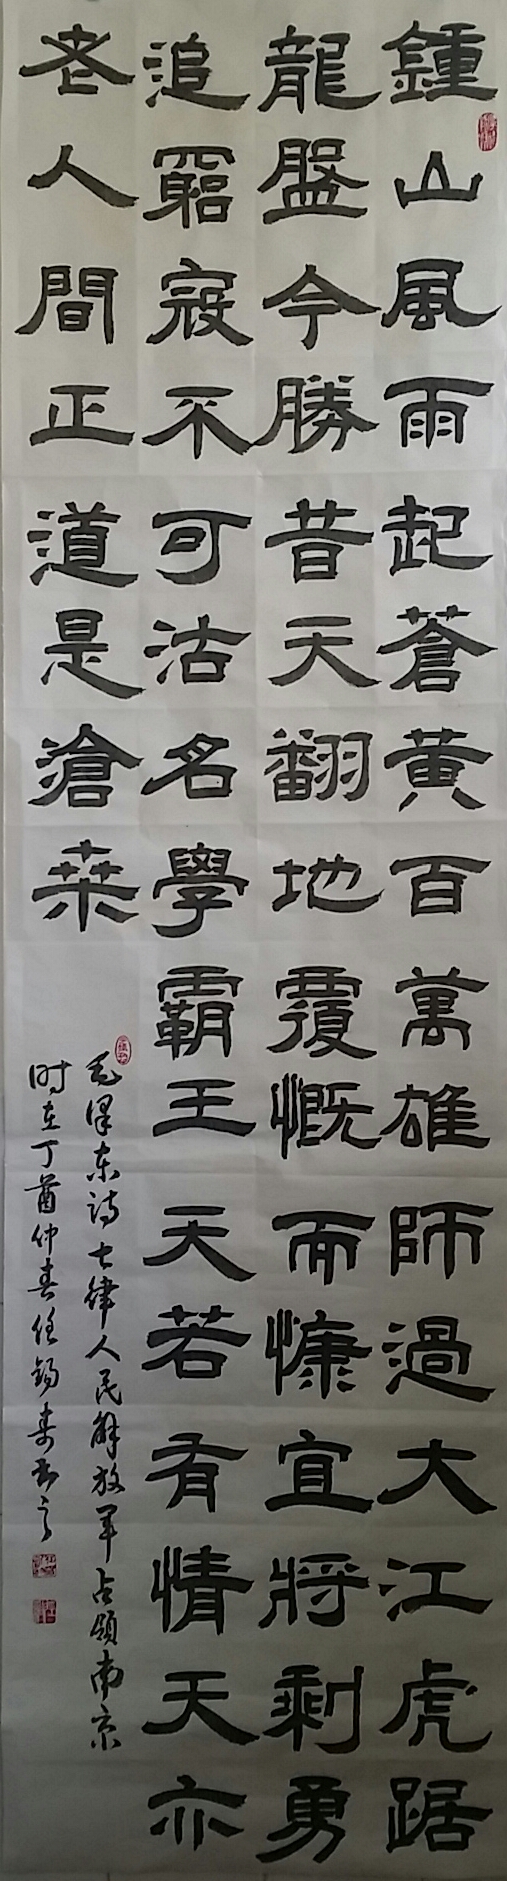 鍾山風雨起蒼黃百萬雄師過大江虎踞
龍盤今勝昔天翻地覆慨而慷宜將剩勇
追窮寇不可沽名學霸王天若有情天亦
老人間正道是滄桑
毛泽东诗七律人民解放军占领南京
时在丁酉仲春任锡寿书